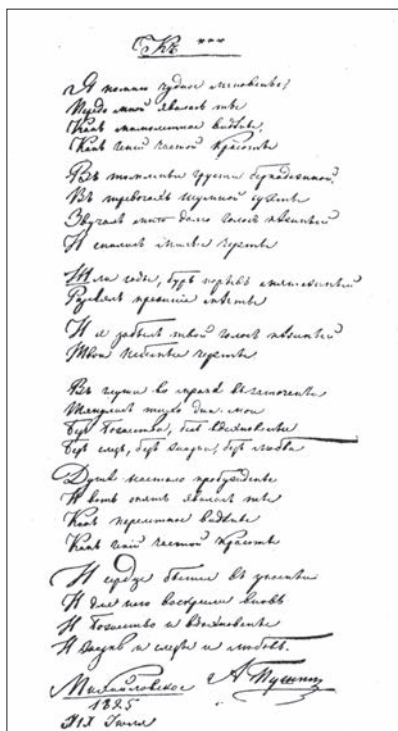 Къ ***
Я помню чудное мгновенье:
Передо мной явилась ты
Какъ мимолетное видѣнье,
Какъ геній чистой красоты
Въ томленьи грусти безнадежной,
Въ тревогахъ шумной суеты
Звучалъ мнѣ долго голосъ нѣжный
И снились милыя черты
Шли годы, бурь порывъ мятежный
Разсѣялъ прежнія мечты
И я забылъ твой голосъ нѣжный
Твои небесныя черты
Въ глуши во мракѣ заточенья
Тянулись тихо дни мои
Безъ божества, безъ вдохновенья
Безъ слезъ, безъ жизни, безъ любви
Душѣ настало пробужденье
И вотъ опять явилась ты
Какъ видѣнье
Какъ геній чистой красоты
И сердце бьется въ упоеньи
И для него воскресли вновь
И божество и вдохновенье
И жизнь и слезы и любовь.
Михайловское А Пушкин
1825
XIX Іюля